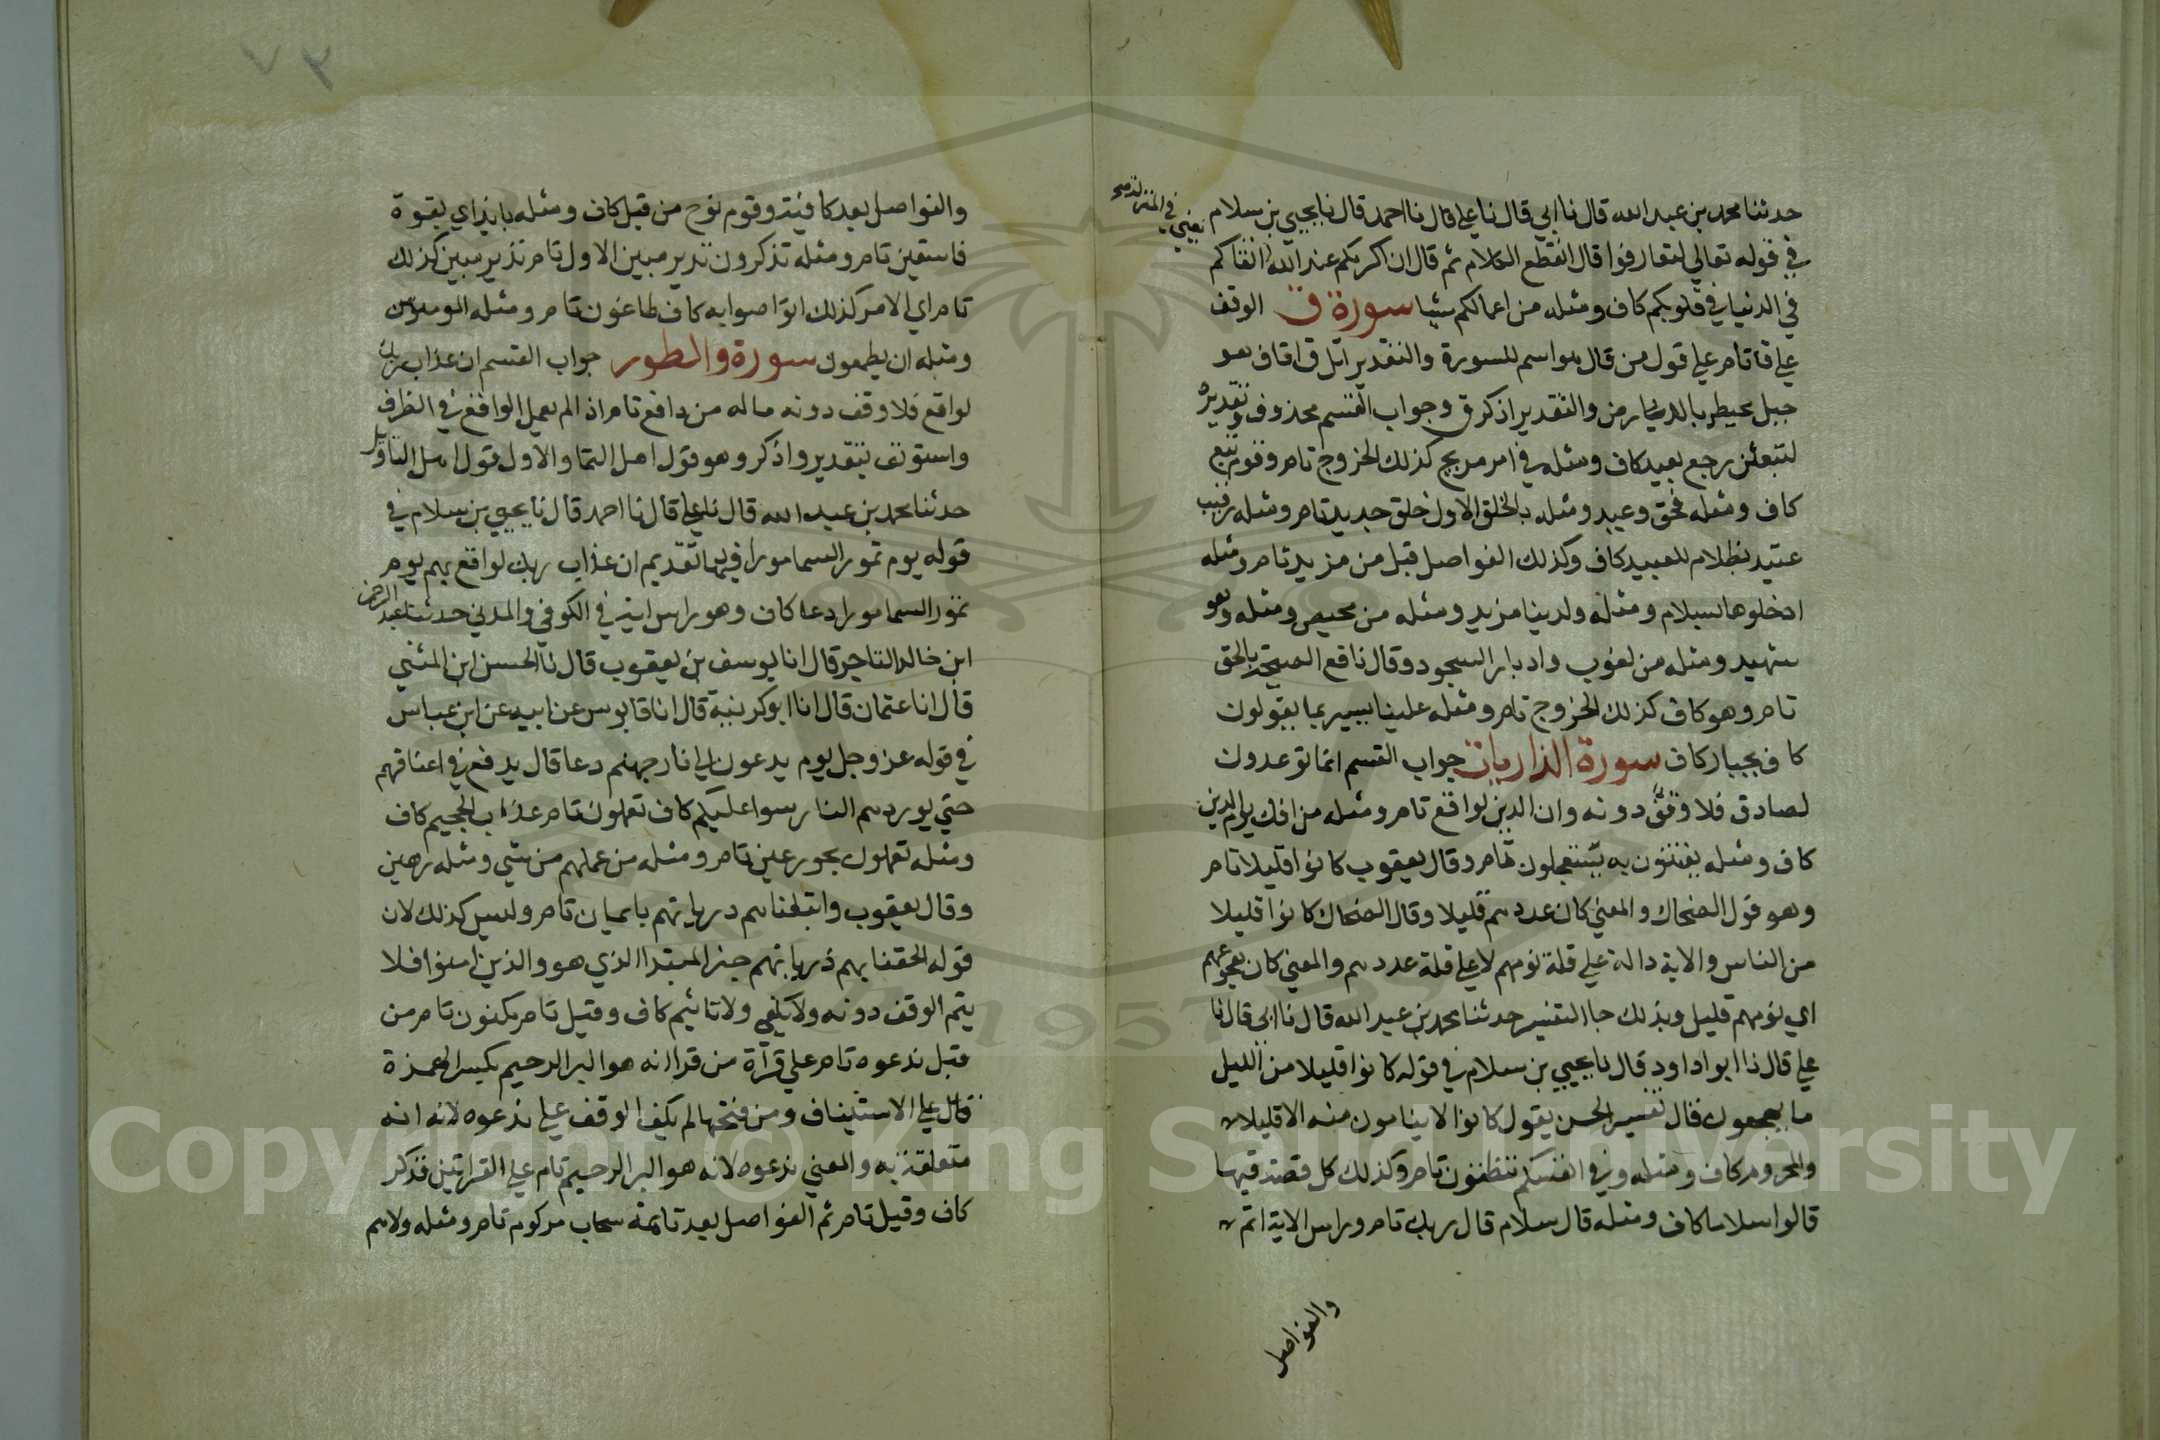 حدثنا محمد بن عبد الله قال نا ابي قال نا علي قال نا احمد قال نا يحيي بن سلام يعني في المنزلة صح
في قوله تعالي لتعارفوا قال انقطع الكلام ثم قال ان اكرمكم عند الله اتقاكم
في الدنيا في قلوبكم كاف ومثله من اعمالكم شيا سورة ق الوقف
علي ق تام علي قول من قال هو اسم للسورة والتقدير اتل ق اقاف هو
جبل محيط بالدنيا ومن والتقدير اذكر ق وجواب القسم محذوف وتقديره
لتبعثن رجع بعيد كاف ومثله في امر مريج كذلك الخروج تام وقوم تبع
كاف ومثله فحق وعيد ومثله بالخلق الاول خلق جديد تام ومثله رقيب
عتيد بظلام للعبيد كاف وكذلك الفواصل قبل من مزيد تام ومثله
ادخلوها بسلام ومثله ولدينا مزيد ومثله من محيص ومثله وهو
شهيد ومثله من لغوب وادبار السجود وقال نافع الصيحة بالحق
تام وهو كاف كذلك الخروج تام ومثله علينا يسير بما يقولون
كاف بجبار كاف سورة الذاريات جواب القسم انما توعدون
لصادق فلا وقف دونه وان الدين لواقع تام ومثله من افك يوم الدين
كاف ومثله يفتنون به تستعجلون تام وقال يعقوب كانوا قليلا تام
وهو قول الضحاك والمعني كان عددهم قليلا وقال الضحاك كانوا قليلا
من الناس والاية دالة علي قلة نومهم لا علي قلة عددهم والمعني كان هجوعهم
اي نومهم قليل وبذلك جا التفسير حدثنا محمد بن عبد الله قال نا ابي قال نا
علي قال نا ابوا داود قال نا يحيي بن سلام في قوله كانوا قليلا من الليل
ما يهجعون قال تفسير الحسن يقول كانوا لا ينامون منه الا قليلا
والمحروم كاف ومثله وفي انفسكم تنطقون تام وكذلك كل قصة فيها
قالوا سلاما كاف ومثله قال سلام قال ربك تام وراس الاية اتم
والفواصل
والفواصل بعد كافية وقوم نوح من قبل كاف ومثله بايد اي بقوة
فاسقين تام ومثله تذكرون نذير مبين الاول تام نذير مبين كذلك
تام اي الامر كذلك اتواصوا به كاف طاغون تام ومثله المومنين
ومثله ان يطعمون سورة والطور جواب القسم ان عذاب ربك
لواقع فلا وقف دونه ماله من دافع تام اذ الم يعمل لواقع في الظرف
واستونف بتقدير واذكر وهو قول اهل التمام والاول قول اهل التاويل
حدثنا محمد بن عبد الله قال نا علي قال نا احمد قال نا يحيي بن سلام في
قوله يوم تمور السما مورا فيها تقديم ان عذاب ربك لواقع بهم يوم
تمور السما مورا دعا كاف وهو راس اية في الكوفي والمدني حدثنا عبد الرحمن
ابن خالد التاجر قال انا يوسف بن يعقوب قال نا الحسن ابن المثني
قال انا عثمان قال انا ابو كدينة قال انا قابوس عن ابيه عن ابن عباس
في قوله عز وجل يوم يدعون الي نار جهنم دعا قال يدفع في اعناقهم
حتي يوردهم النار سوا عليكم كاف تعملون تام عذاب الجحيم كاف
ومثله تعملون بحور عين تام ومثله من عملهم من شي ومثله رهين
وقال يعقوب واتبعناهم درياتهم بايمان تام وليس كذلك لان
قوله الحقنا بهم ذرياتهم خبر المبتدا الذي هو والذين امنوا فلا
يتم الوقف دونه ولا يكفي ولا تاثيم كاف وقيل تام مكنون تام من
قبل ندعوه تام علي قرآة من قرا انه هو البر الرحيم بكسر الهمزة
قال علي الاستيناف ومن فتحها لم يكف الوقف علي ندعوه لانه انه
متعلقة به والمعني ندعوه لانه هو البر الرحيم تام علي القراتين فذكر
كاف وقيل تام ثم الفواصل بعد تامة سحاب مركوم تام ومثله ولاهم